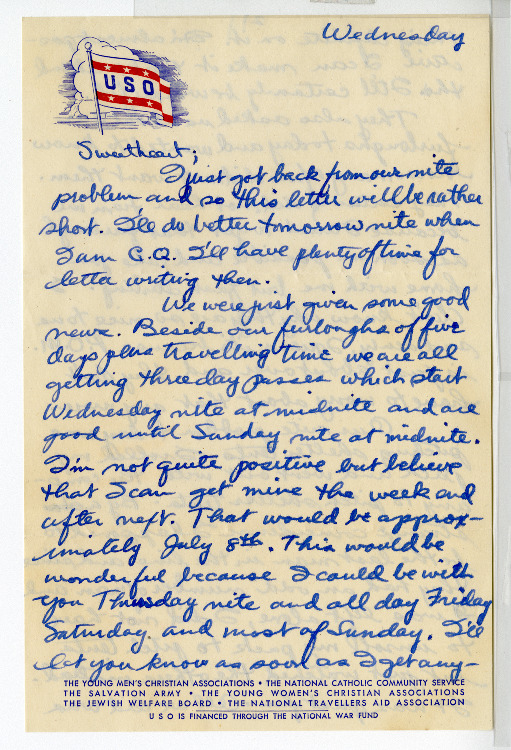 Wednesday
USO
Sweetheart;
I just got back from our nite
problem and so this letter will be rather
short. I'll do better tomorrow nite when
I am C.Q. I'll have plenty of time for
letta writing then.
We were just given some good
news. Beside our furloughs of five
days plus travelling time we are all
getting three day passes which start
Wednesday nite at midnite and are
good until Sunday nite at midnite.
I'm not quite positive but believe
that I can get mine the week and
after next. That would be approx-
imately July 8th. This would be
wonderful because I could be with
you Thursday nite and all day Friday
Saturday. and most of Sunday. I'll
let you know as soon as I get any-
THE YOUNG MEN'S CHRISTIAN ASSOCIATIONS • THE NATIONAL CATHOLIC COMMUNITY SERVICE
THE SALVATION ARMY • THE YOUNG WOMEN'S CHRISTIAN ASSOCIATIONS
THE JEWISH WELFARE BOARD • THE NATIONAL TRAVELLERS AID ASSOCIATION
USO IS FINANCED THROUGH THE NATIONAL WAR FUND